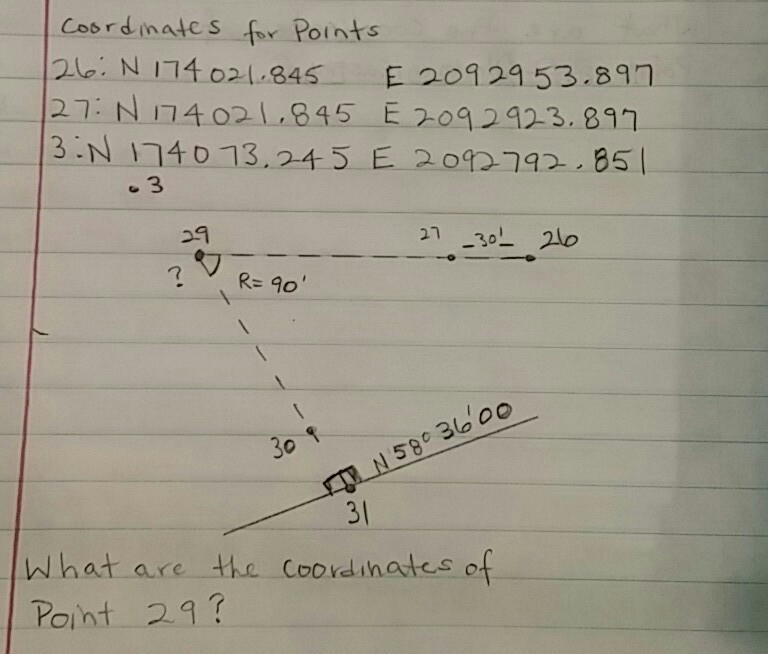 Coordinates for Points
26: N 174021.845 E 2092953.897
27: N 174021.845 E 2092923.897
3: N 174073.245 E 2092792.851
.3
29
27 -30'- 26
? R= 90'
30
N 58° 36' 00
31
What are the coordinates of
Point 29?